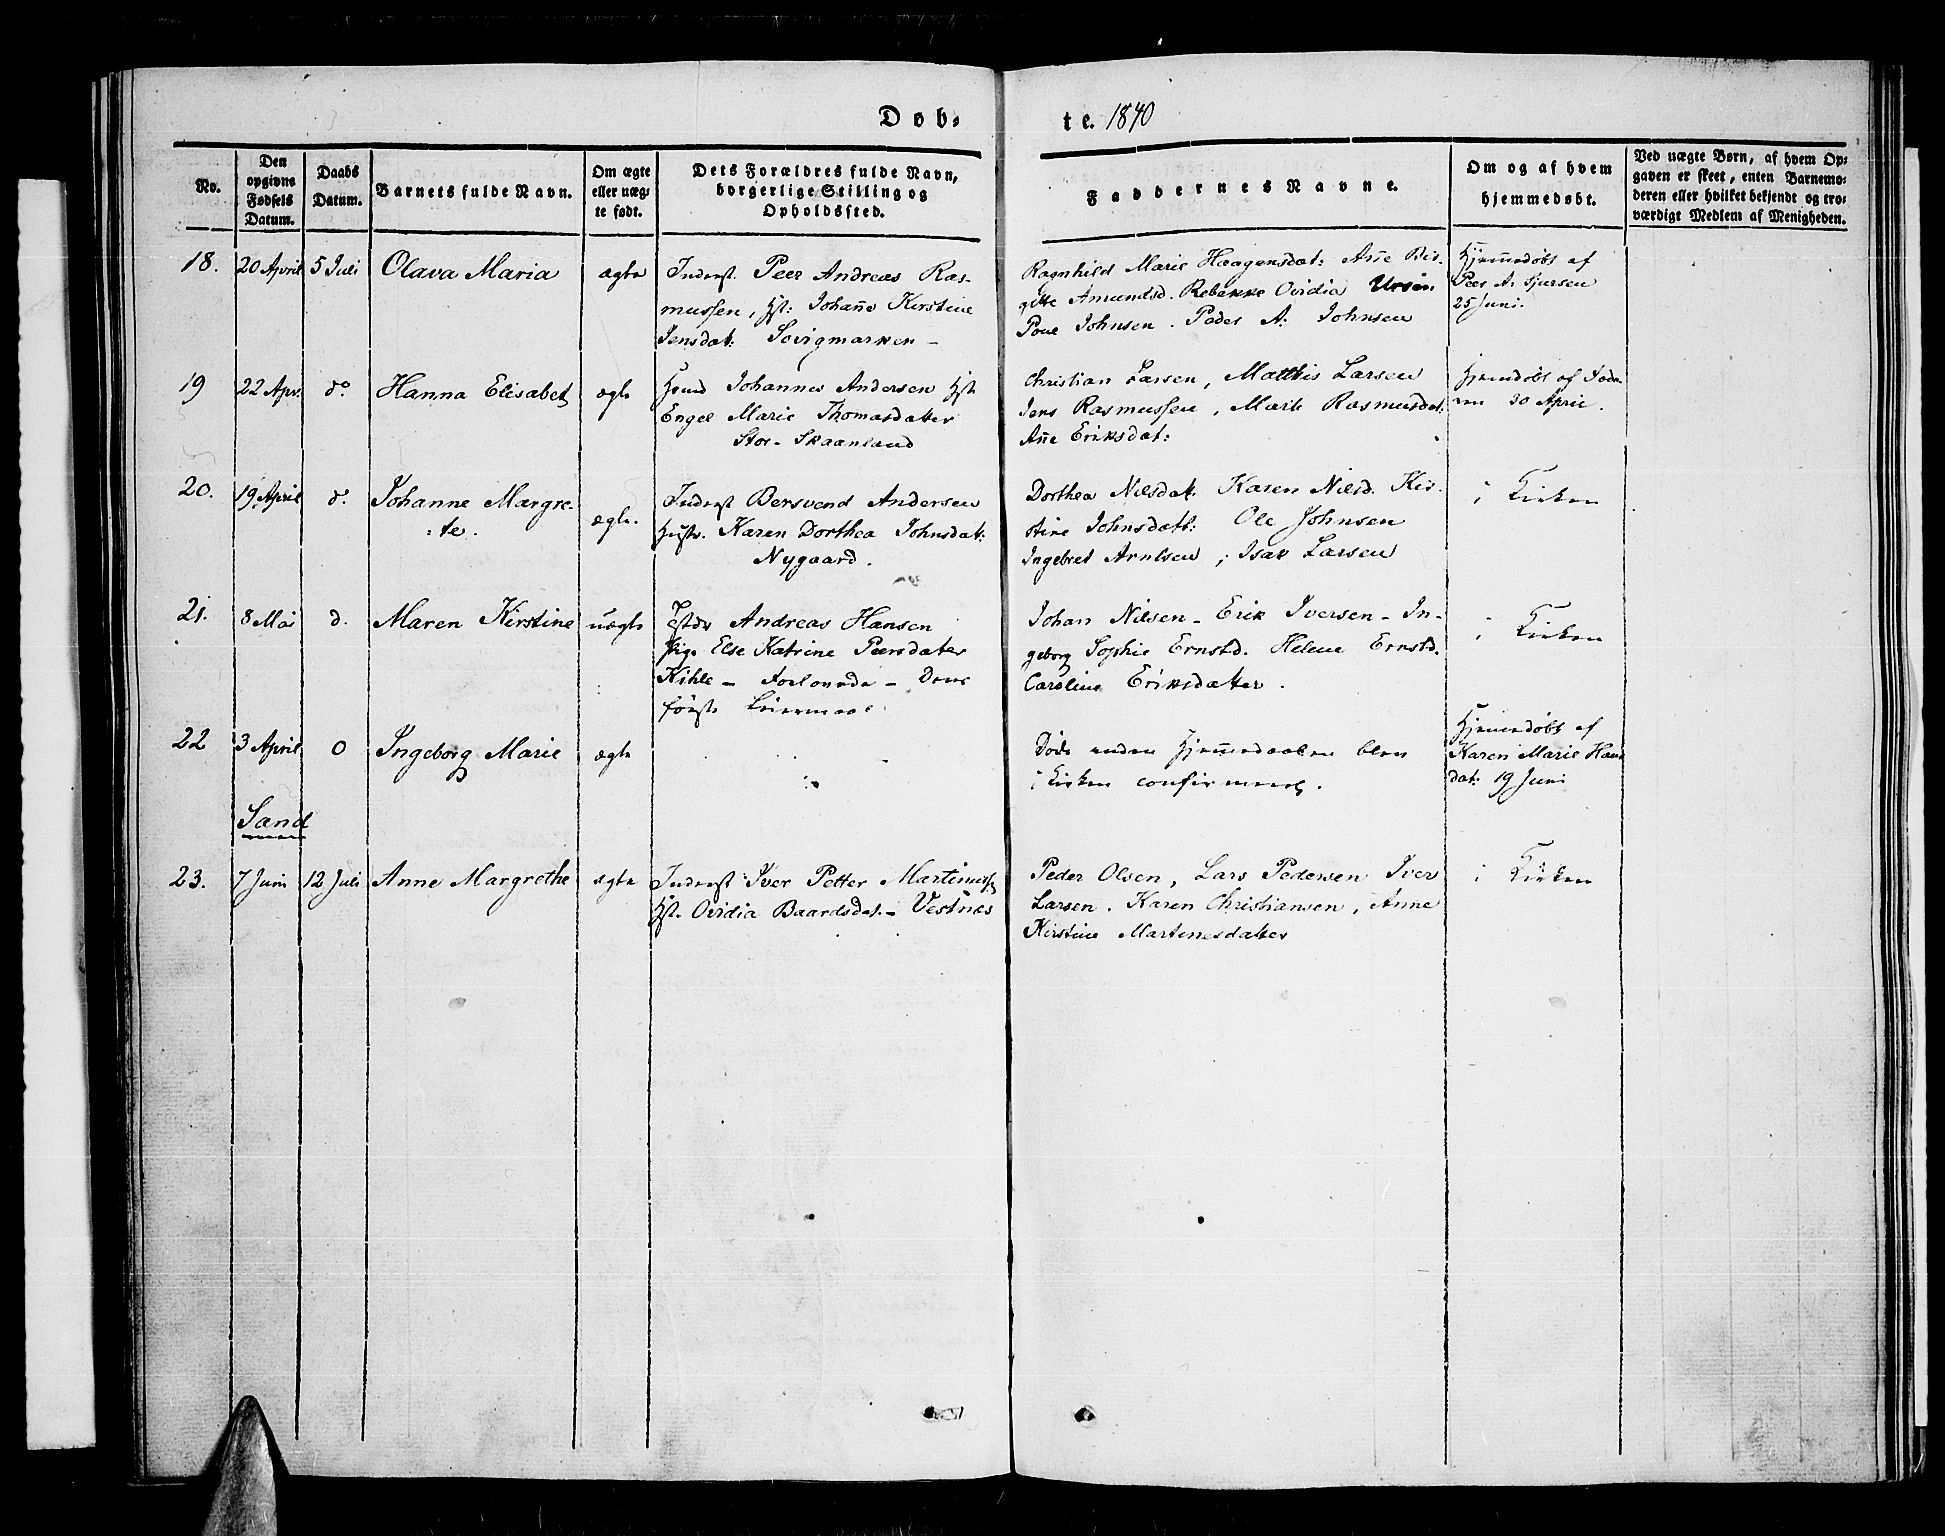 Døb-
te. 1840
No.
Den
opgivne
Fødsels
Datum.
Daabs
Datum.
Barnets fulde Navn.
Om ægte
eller uæg-
te født.
Dets Forældres fulde Navn,
borgerlige Stilling og
Opholdssted.
Faddernes Navne.
Om og af hvem
hjemmedøbt.
Ved uægte Børn, af hvem Op-
gaven er skeet, enten Barnemo-
deren eller hvilket bekjendt og tro-
værdigt Medlem af Menigheden.
18. 20 April 5 Juli Olava Maria ægte
Inderst. Peer Andreas Ras-
mussen, Hst: Johan̄e Kirstine
Jensdat: Sovigmarken -
Ragnhild Marie Haagensdat: An̄e Bir-
gitte Amundsd. Rebekke Ovidia
Povel Johnsen. Peder A: Johnsen
Hjem̄edøbt af
Peer A. Sjursen
25 Juni.
19 22 Apr. do Hanna Elisabet ægte
Johannes Andersen Hst
Engel Marie Thomasdatter
Stor-Skaanland
Christian Larsen, Matthis Larsen
Jens Rasmussen, Marit Rasmusdat.
An̄e Eriksdat:
Hjem̄edøbt af
30 April.
20. 19 April do Johanne Margre-
te. ægte.
Inderst Bersvend Andersen
Hustr. Karen Dorthea Johnsdat:
Nygaard.
Dorthea Nilsdat. Karen Nilsd. Kir-
stine Johnsdatt: Ole Johnsen
Ingebret Arntsen, Isak Larsen
i Kirken
21. 8 Mai d. Maren Kirstine uægte
Andreas Hansen
Pige Else Katrine Peersdatter
Kihle - Forlovede -
første Leiermaal
Johan Nilsen - Erik Iversen - In-
geborg Sophie Ernstd. Helene Ernstd.
Caroline Eriksdatter.
i Kirken
22 3 April 0 Ingeborg Marie ægte
Døde inden Hjem̄edaaben blev
i Kirken confirmeret.
Hjem̄edøbt af
Karen Marie Hans
dat: 19 Juni
Sand
23. 7 Juni 12 Juli Anne Margrethe ægte
Inderst Iver Petter Martinus
Hst. Ovidia Baardsdat. - Vestnæs
Peder Olsen, Lars Pedersen Iver
Larsen. Karen Christiansen, Anne
Kirstine Martinesdatter
i Kirken